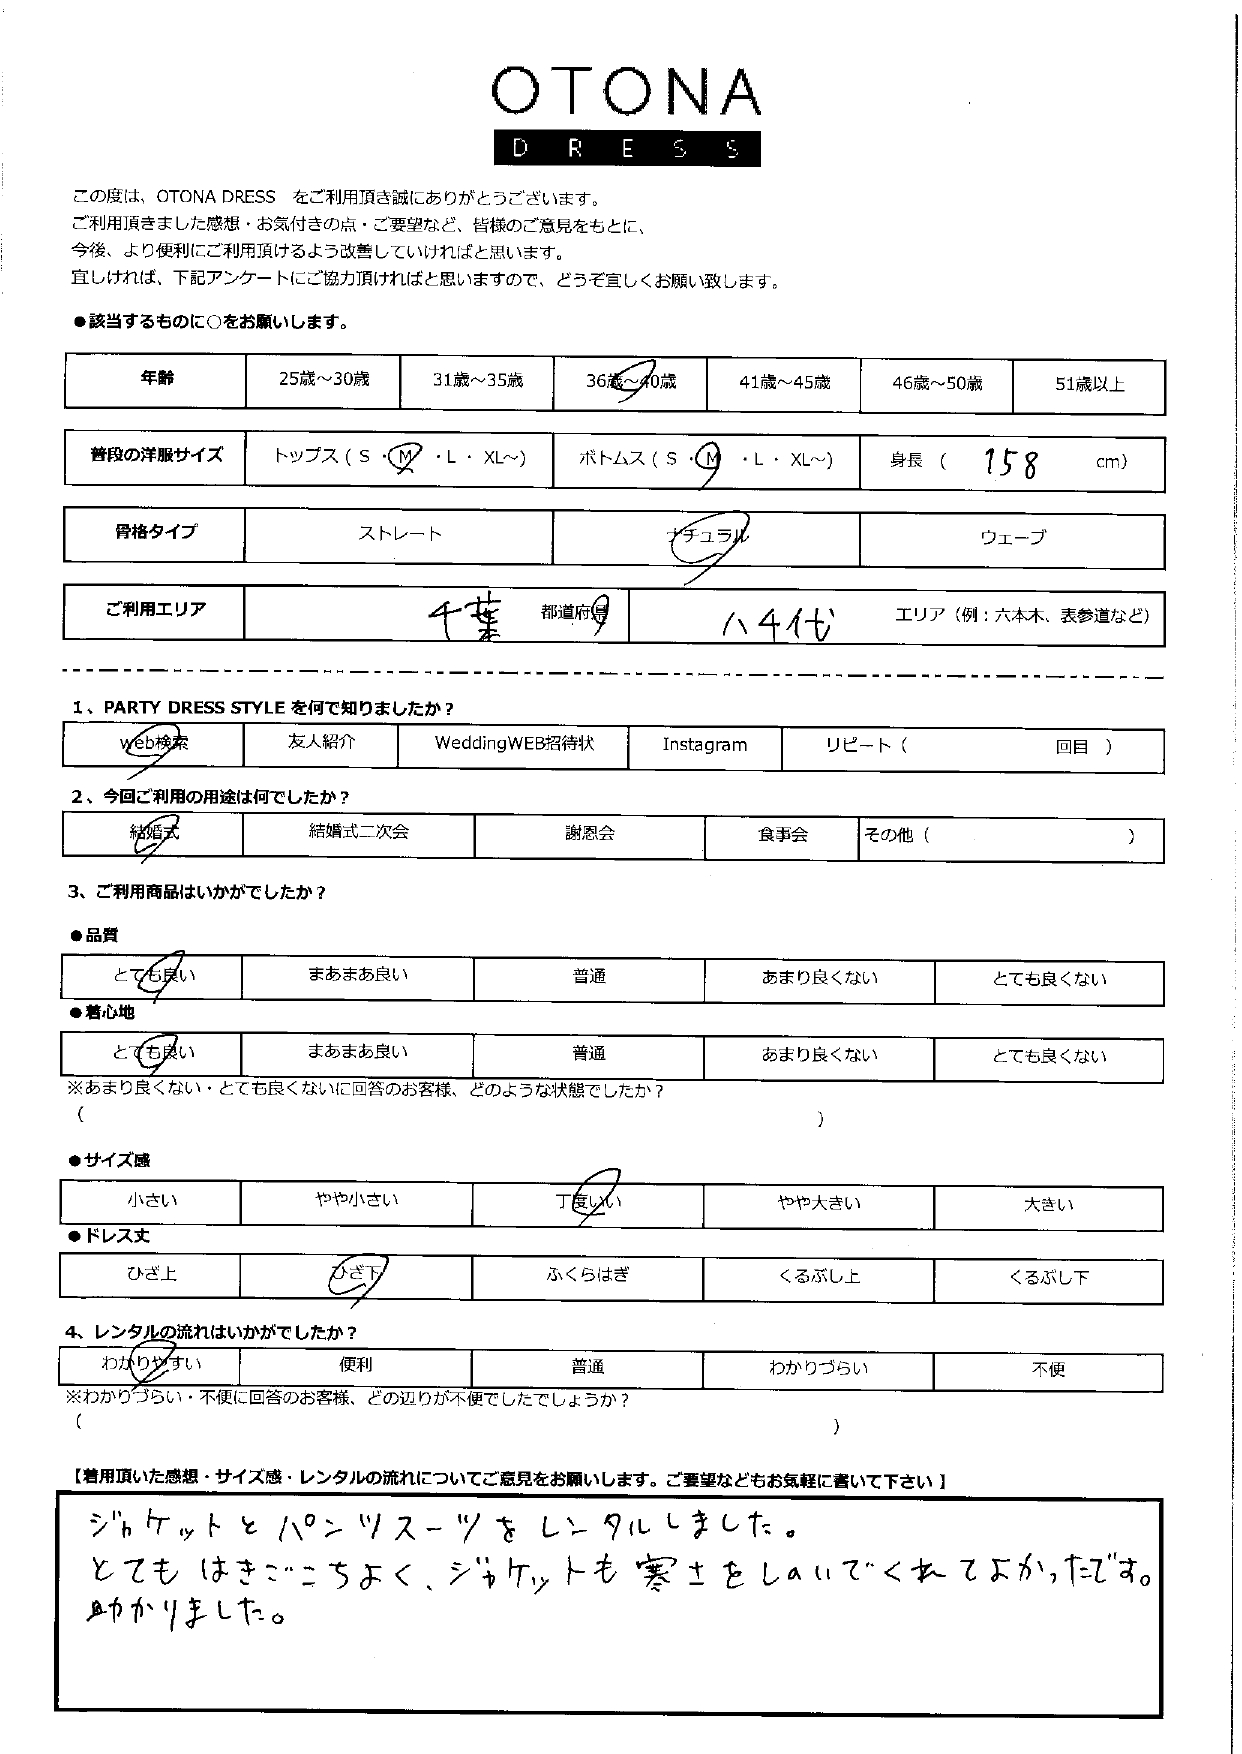 OTONA
DRESS
この度は、OTONA DRESS をご利用頂き誠にありがとうございます。
ご利用頂きました感想・お気付きの点・ご要望など、皆様のご意見をもとに、
今後、より便利にご利用頂けるよう改善していければと思います。
宜しければ、下記アンケートにご協力頂ければと思いますので、どうぞ宜しくお願い致します。
●該当するものに○をお願いします。
年齢 25歳～30歳 31歳～35歳 36歳～40歳 41歳～45歳 46歳～50歳 51歳以上
普段の洋服サイズ トップス ( S ・M ・L ・ XL～) ボトムス ( S ・M ・L ・ XL～) 身長 ( 158 cm)
骨格タイプ ストレート ナチュラル ウェーブ
ご利用エリア 千葉 都道府県 八千代 エリア (例：六本木、表参道など)
1、PARTY DRESS STYLE を何で知りましたか？
web検索 友人紹介 WeddingWEB招待状 Instagram リピート ( 回目 )
2、今回ご利用の用途は何でしたか？
結婚式 結婚式二次会 謝恩会 食事会 その他 ( )
3、ご利用商品はいかがでしたか？
●品質
とても良い まあまあ良い 普通 あまり良くない とても良くない
●着心地
とても良い まあまあ良い 普通 あまり良くない とても良くない
※あまり良くない・とても良くないに回答のお客様、どのような状態でしたか？
( )
●サイズ感
小さい やや小さい 丁度いい やや大きい 大きい
●ドレス丈
ひざ上 ひざ下 ふくらはぎ くるぶし上 くるぶし下
4、レンタルの流れはいかがでしたか？
わかりやすい 便利 普通 わかりづらい 不便
※わかりづらい・不便に回答のお客様、どの辺りが不便でしたでしょうか？
( )
【着用頂いた感想・サイズ感・レンタルの流れについてご意見をお願いします。ご要望などもお気軽に書いて下さい】
ジャケットとパンツスーツをレンタルしました。
とてもはきごこちよく、ジャケットも寒さをしのいでくれてよかったです。
助かりました。